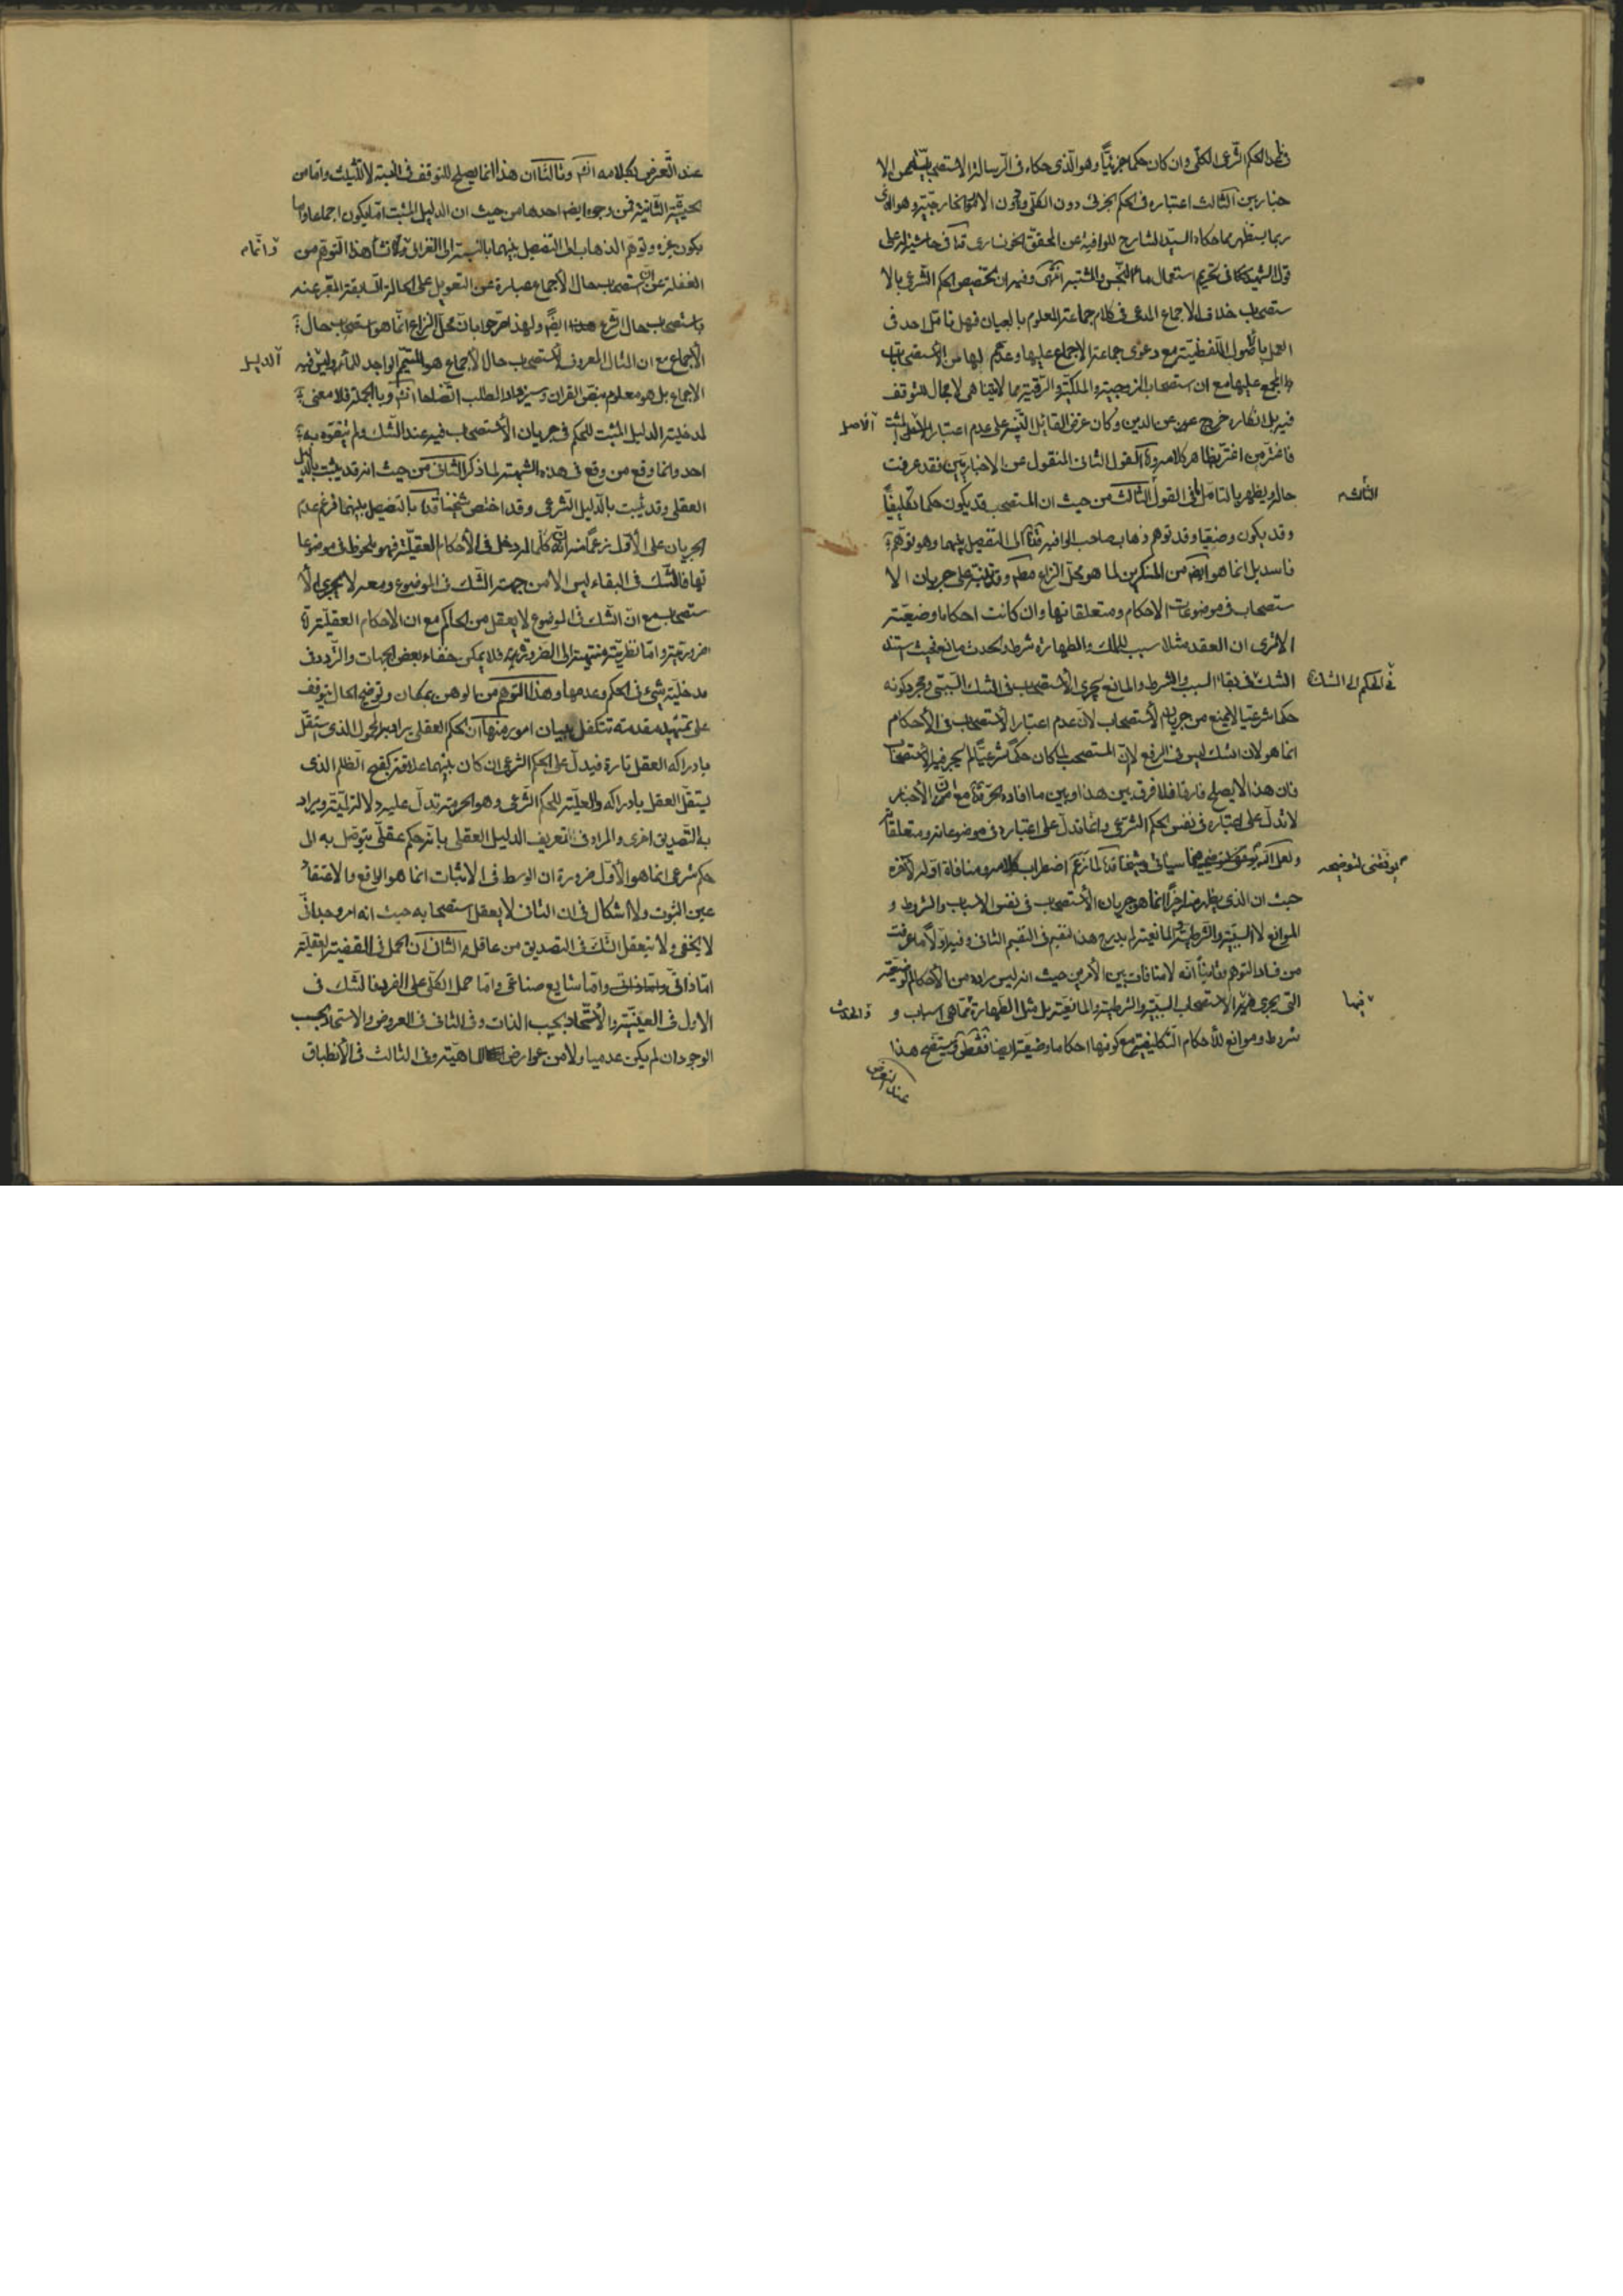 الحكم الشرعى الكلى وان كان حكما جزئيا وهو الذى حكاه فى الرسالة الاستصحابية من الا
خباريين الثالث اعتباره فى الحكم الجزئى دون الكلى ودون الامور الخارجية وهو الذى
ربما يستظهر مما حكاه السيد الشارح للوافية عن المحقق الخونسارى فى حاشية له على
قول الشهيد فى تحريم استعمال ماء النجس والمشتبه انتهى وفيه ان تخصيص الحكم الشرعى بالا
ستصحاب خلاف الاجماع المدعى فى كلام جماعة المعلوم بالعيان فهل تامل احد فى
العمل باصول اللفظية مع دعوى جماعة الاجماع عليها وعدهم لها من الاستصحابات
المجمع عليها مع ان استصحاب الزوجية والملكية والرقية مما لايتناهى لا مجال للتوقف
فيه بل انكاره خروج عن الدين وكان غرض القائل التنبيه على عدم اعتبار المثبت
الاصل
فاغتر من اغتر بظاهر كلامه واما القول الثانى المنقول عن الاخباريين فقد عرفت
حاله ويظهر بالتامل فى القول الثالث من حيث ان المستصحب قد يكون حكما تكليفيا
الثالثه
وقد يكون وضعيا وقد توهم ذهاب صاحب الوافية الى التفصيل بينهما وهو توهم
فاسد بل انما هو ايضا من المنكرين لما هو محل النزاع مطلقا وقد نبه على جريان الا
ستصحاب فى موضوعات الاحكام ومتعلقاتها وان كانت احكاما وضعية
الا ترى ان العقد مثلا سبب للملك والطهارة شرط والحدث مانع فحيث استند
الشك فى بقاء السبب والشرط والمانع يجرى الاستصحاب فى الشك السببى ومجرد كونه
فى الحكم الى الشك
حكما شرعيا لا يمنع من جريان الاستصحاب لان عدم اعتبار الاستصحاب فى الاحكام
انما هو لان الشك ليس فى الرفع لان المستصحب لما كان حكما شرعيا لم يجر فيه الاستصحاب
فان هذا لا يصلح فارقا فلا فرق بين هذا وبين ما افاده مع ان الاخبار
لا تدل على اعتباره فى نفس الحكم الشرعى وانما تدل على اعتباره فى موضوعاته ومتعلقاته
ولعل الله سياتى وشيخنا لما زعم اضطراب كلامه ومنافاة اوله لاخره
يوفقنى لتوضيحه
حيث ان الذى يظهر منه اخرا انما هو جريان الاستصحاب فى نفس الاسباب والشروط و
الموانع لا السببية والشرطية والمانعية لم يدرج هذا التقسيم فى التقسيم الثانى وفيه اولا ما عرفت
من فساد التوهم وثانيا انه لا منافات بين الامرين حيث انه ليس مراده من الاحكام الوضعية
التى يجرى فيها الاستصحاب السببية والشرطية والمانعية بل مثل الطهارة مما هى اسباب و
فيها
والحدث
شروط وموانع للاحكام التكليفية مع كونها احكاما وضعية ايضا وستتضح هذا
عند التعرض
عند التعرض لكلامه وثالثا ان هذا انما يصلح للتوقف فى النسبة لا التثليث واما من
الحيثية الثانية فمن وجوه ايضا احدها من حيث ان الدليل المثبت اما يكون اجماعا واما
يكون غيره وتوهم الذهاب الى التفصيل بينهما بالنسبة الى الغزالى وانما نشأ هذا التوهم من
وانما
الغفلة عن ان استصحاب حال الاجماع عبارة عن التعويل على الحالة السابقة المعبر عنه
باستصحاب حال الشرع ايضا ولهذا صرحوا بان محل النزاع انما هو استصحاب حال
الاجماع مع ان المثال المعروف لاستصحاب حال الاجماع هو المتيمم الواجد للماء وليس فيه
الدليل
الاجماع بل هو معلوم بنص القران وسيزداد المطلب اتضاحا وبالجملة فلا معنى
لمدخلية الدليل المثبت للحكم فى جريان الاستصحاب فيه عند الشك ولم يتفوه به
احد وانما وقع من وقع فى هذه الشبهة لما ذكر الثانى من حيث انه قد يثبت بالدليل
العقلى وقد يثبت بالدليل الشرعى وقد اختص شيخنا بالتفصيل بينهما فزعم عدم
الجريان على الاول زعما منه ان كلما له دخل فى الاحكام العقلية فهو ملحوظ فى موضوعا
تها فالشك فى البقاء ليس الا من جهة الشك فى الموضوع ومعه لا يجرى الا
ستصحاب مع ان الشك فى الموضوع لا يعقل من الحاكم مع ان الاحكام العقلية
ضرورية واما نظرية منتهية الى الضرورة فلا يمكن خفاء بعض الجهات والتردد فى
مدخلية شىء فى الحكم وعدمها وهذا التوهم من الوهن بمكان وتوضيح الحال يتوقف
على تمهيد مقدمة تتكفل ببيان امور منها ان الحكم العقلى يراد به المحمول الذى استقل
بادراكه العقل تارة فيدل على الحكم الشرعى ان كان بينهما علاقة كقبح الظلم الذى
يستقل العقل بادراكه والعلية للحكم الشرعى وهو الحرمة تدل عليه دلالة لمية ويراد
به التصديق اخرى والمراد فى تعريف الدليل العقلى بانه حكم عقلى يتوصل به الى
حكم شرعى انما هو الاول ضرورة ان الوسط فى الاثبات انما هو الواقع والاعتقاد
عين الثبوت ولا اشكال فى ان الثانى لا يعقل استصحابه حيث انه امر وجدانى
لا يخفى ولا يتعقل الشك فى التصديق من عاقل الثانى ان الحمل فى القضية العقلية
اما ذاتى واما شايع صناعى واما حمل الكلى على الفرد فالشك فى
الاول فى العينية والاتحاد بحسب الذات وفى الثانى فى العروض والاتحاد بحسب
الوجود ان لم يكن عدميا ولا من عوارض الماهية وفى الثالث فى الانطباق